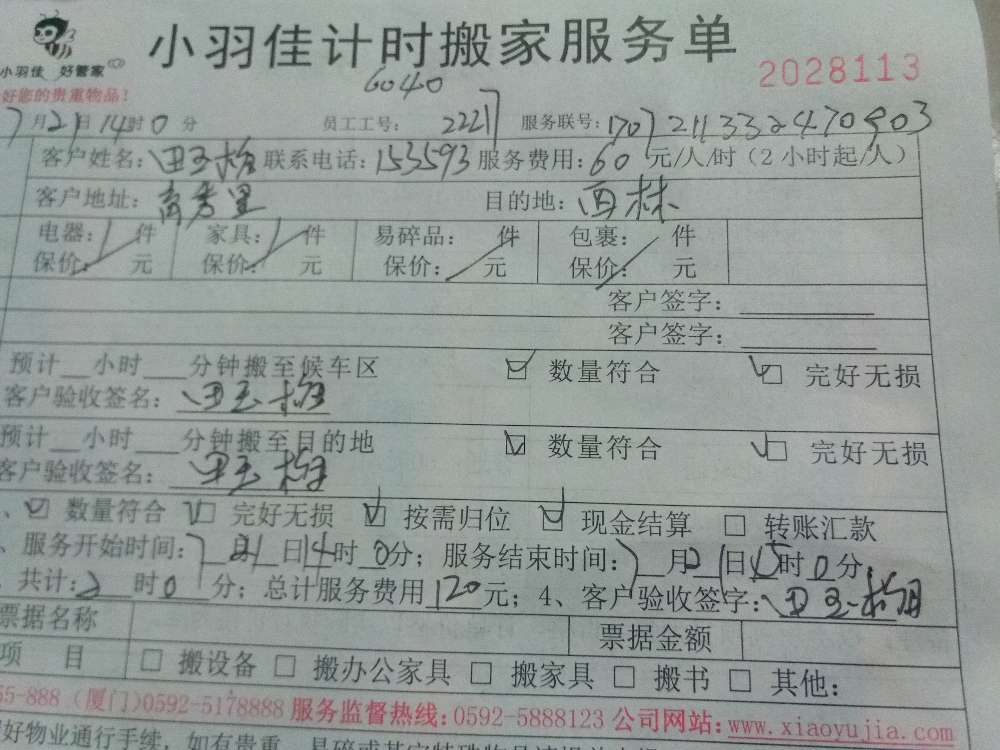 小羽佳计时搬家服务单
小羽佳 好管家
好您的贵重物品!
6040
2028113
7月21日14时0分 员工工号: 2227 服务联号:1707211332470903
客户姓名:田玉梅 联系电话:153593 服务费用:60元/人/时(2小时起/人)
客户地址:高秀里 目的地:西林
电器: 件 家具: 件 易碎品: 件 包裹: 件
保价: 元 保价: 元 保价: 元 保价: 元
客户签字:
客户签字:
预计__小时___分钟搬至候车区 ☑ 数量符合 ☑ 完好无损
客户验收签名:田玉梅
预计__小时___分钟搬至目的地 ☑ 数量符合 ☑ 完好无损
客户验收签名:田玉梅
、☑ 数量符合 ☑ 完好无损 ☑ 按需归位 ☑ 现金结算 □ 转账汇款
、服务开始时间:7月21日14时0分;服务结束时间:7月21日15时0分,
、共计:2时0分;总计服务费用120元;4、客户验收签字:田玉梅
票据名称 票据金额
项 目 □ 搬设备 □ 搬办公家具 □ 搬家具 □ 搬书 □ 其他:
55-888(厦门)0592-5178888 服务监督热线:0592-5888123 公司网站:www.xiaoyujia.com
好物业通行手续,如有贵重、易碎或其它特殊物品请提前